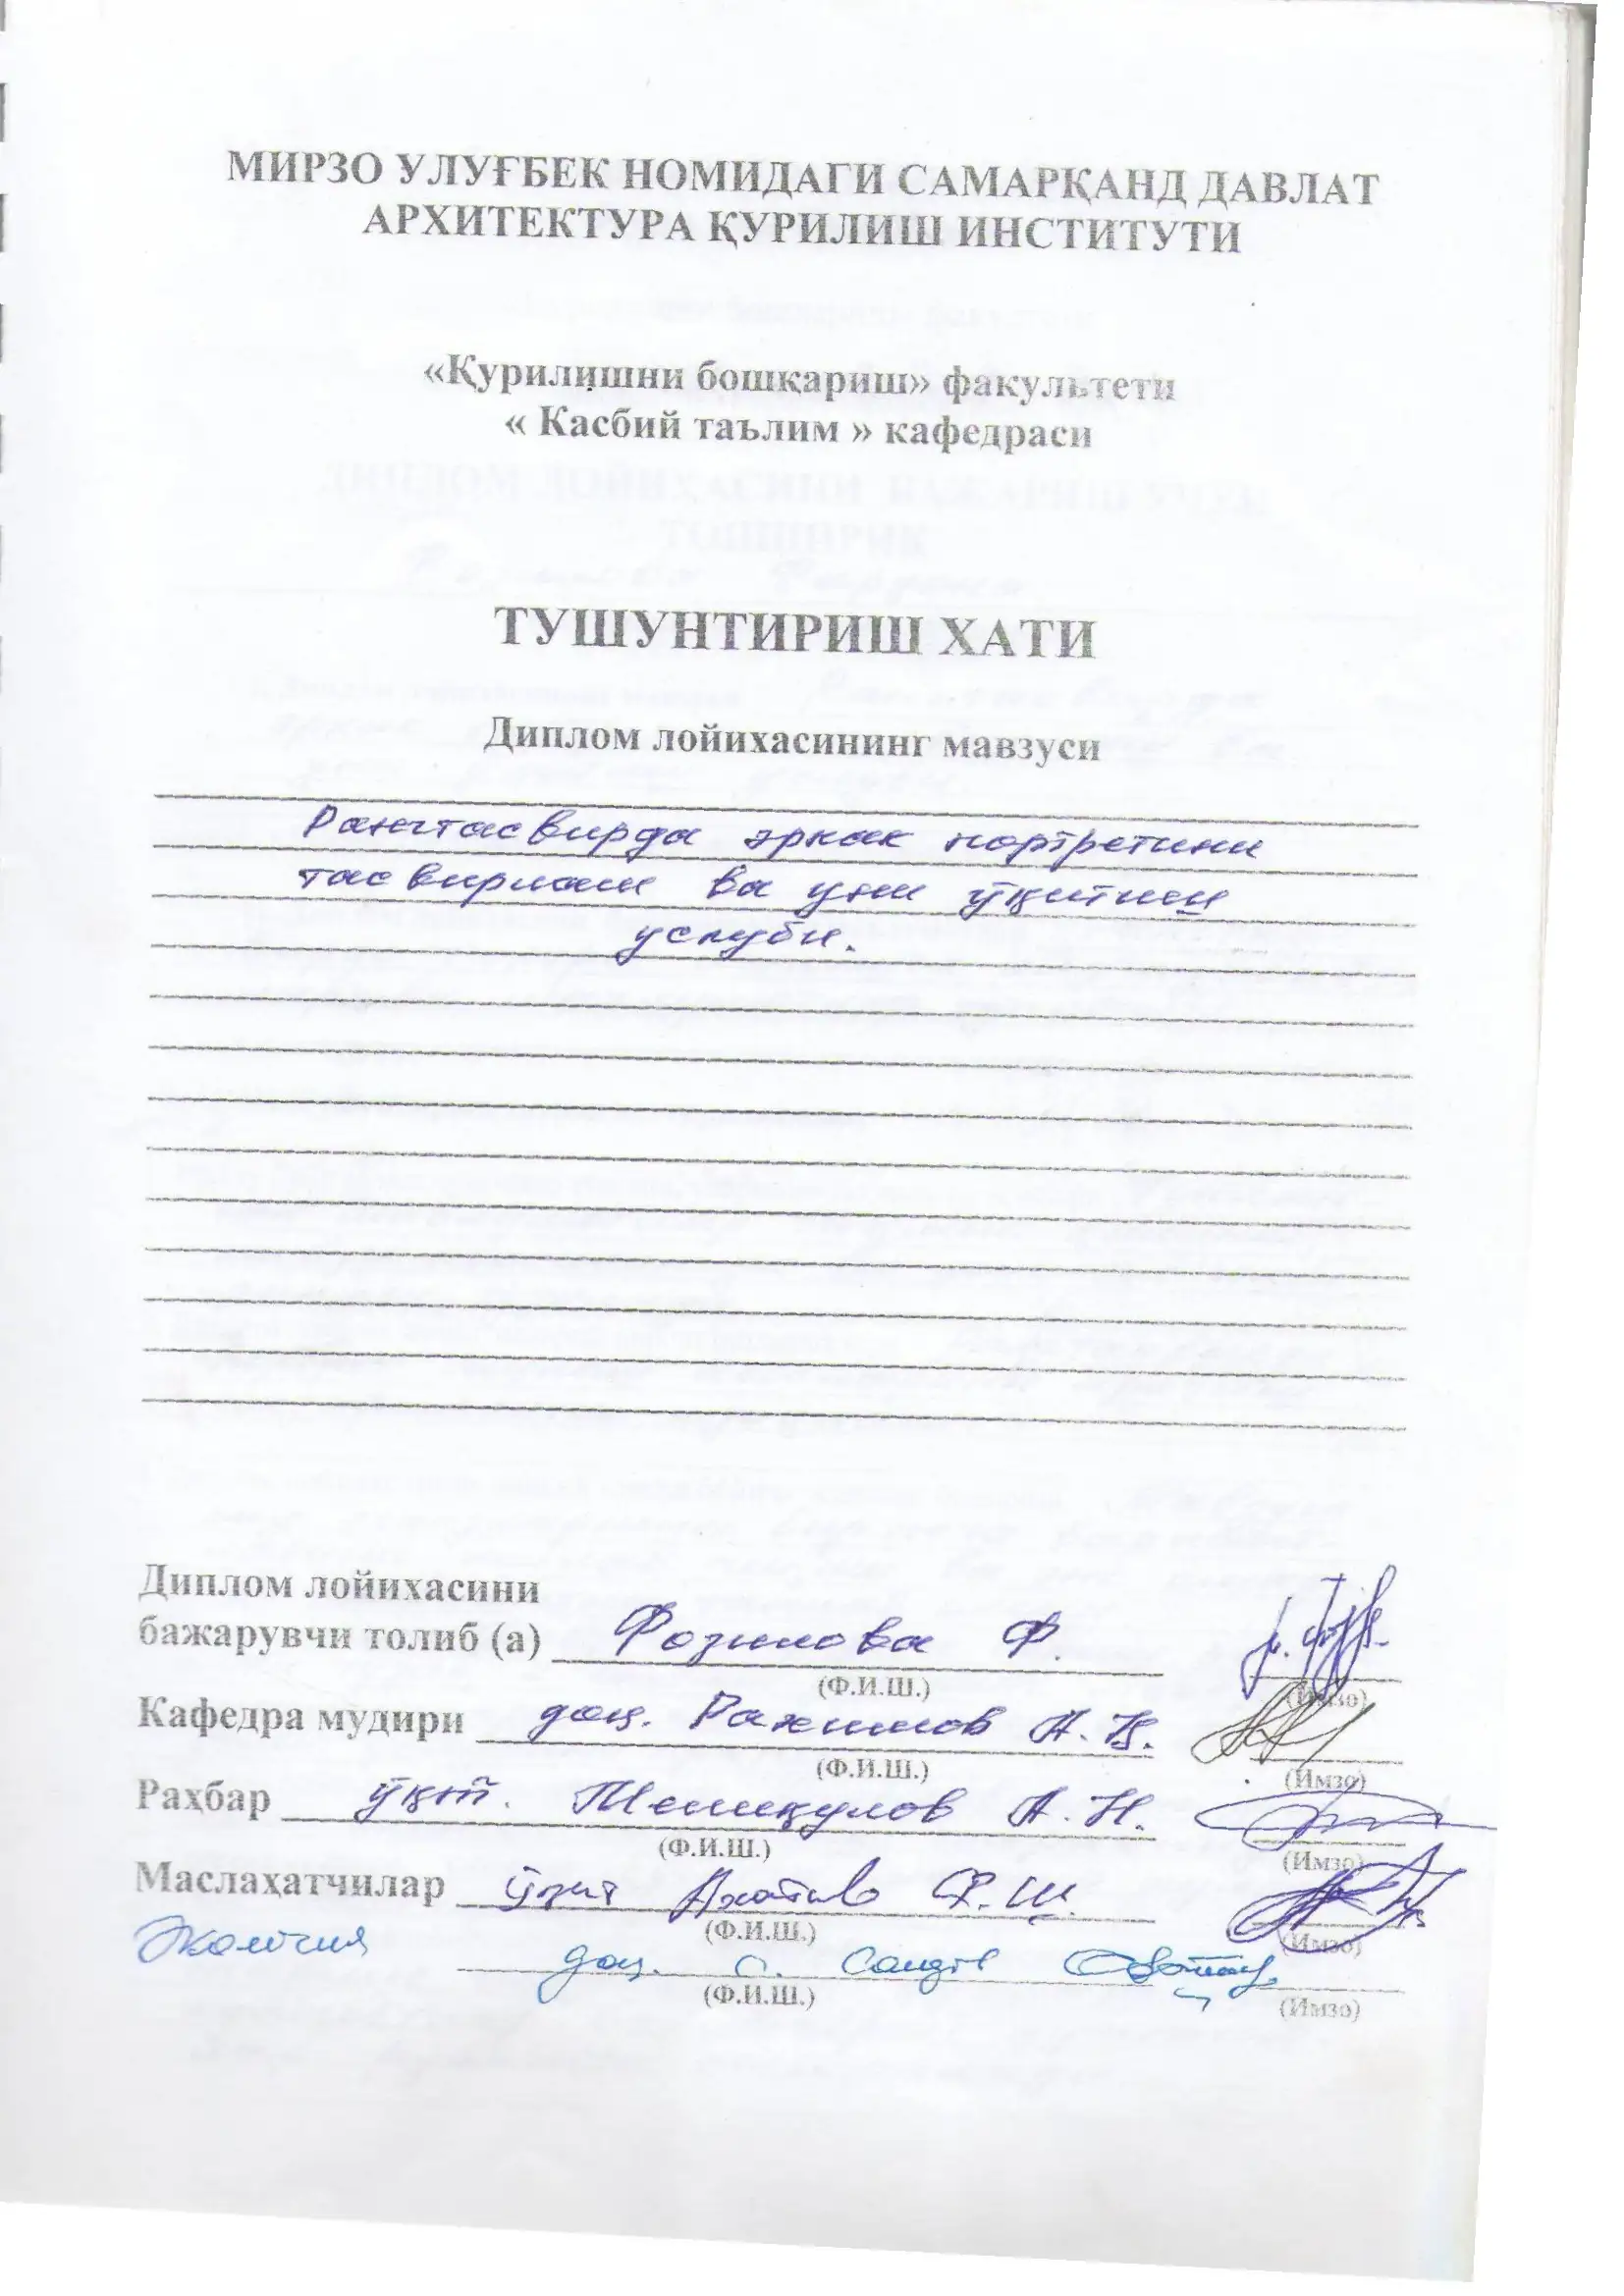 МИРЗО УЛУҒБЕК НОМИДАГИ САМАРҚАНД ДАВЛАТ
АРХИТЕКТУРА ҚУРИЛИШ ИНСТИТУТИ
«Қурилишни бошқариш» факультети
« Касбий таълим » кафедраси
ТУШУНТИРИШ ХАТИ
Диплом лойихасининг мавзуси
Рангтасвирда эркак портретини
тасвирлаш ва уни ўқитиш
услуби.
Диплом лойихасини
бажарувчи толиб (а) Фозилова Ф.
(Ф.И.Ш.) (Имзо)
Кафедра мудири доц. Рахимов А.Қ.
(Ф.И.Ш.) (Имзо)
Раҳбар ўқит. Тешиқулов А.Н.
(Ф.И.Ш.) (Имзо)
Маслаҳатчилар ўқит Ф.Ш.
(Ф.И.Ш.) (Имзо)
Экология доц. С.
(Ф.И.Ш.) (Имзо)